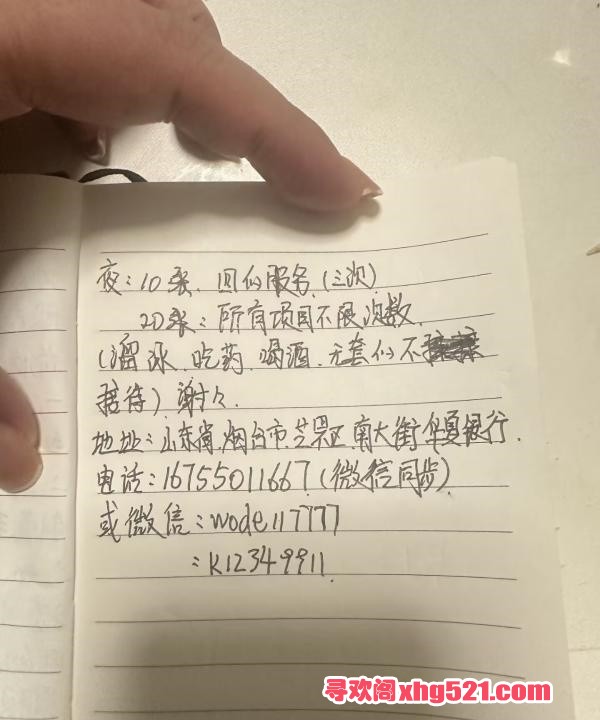 夜:10张.回们服务.(三次)
20张:所有项目不限次数.
(溜冰.吃药.喝酒.无套们不
接待)谢谢々.
地址:山东省.烟台市.芝罘区.南大街华夏银行.
电话:16755011667.(微信同步)
或微信:wode117777
:K12349911.
寻欢阁xhg521.com